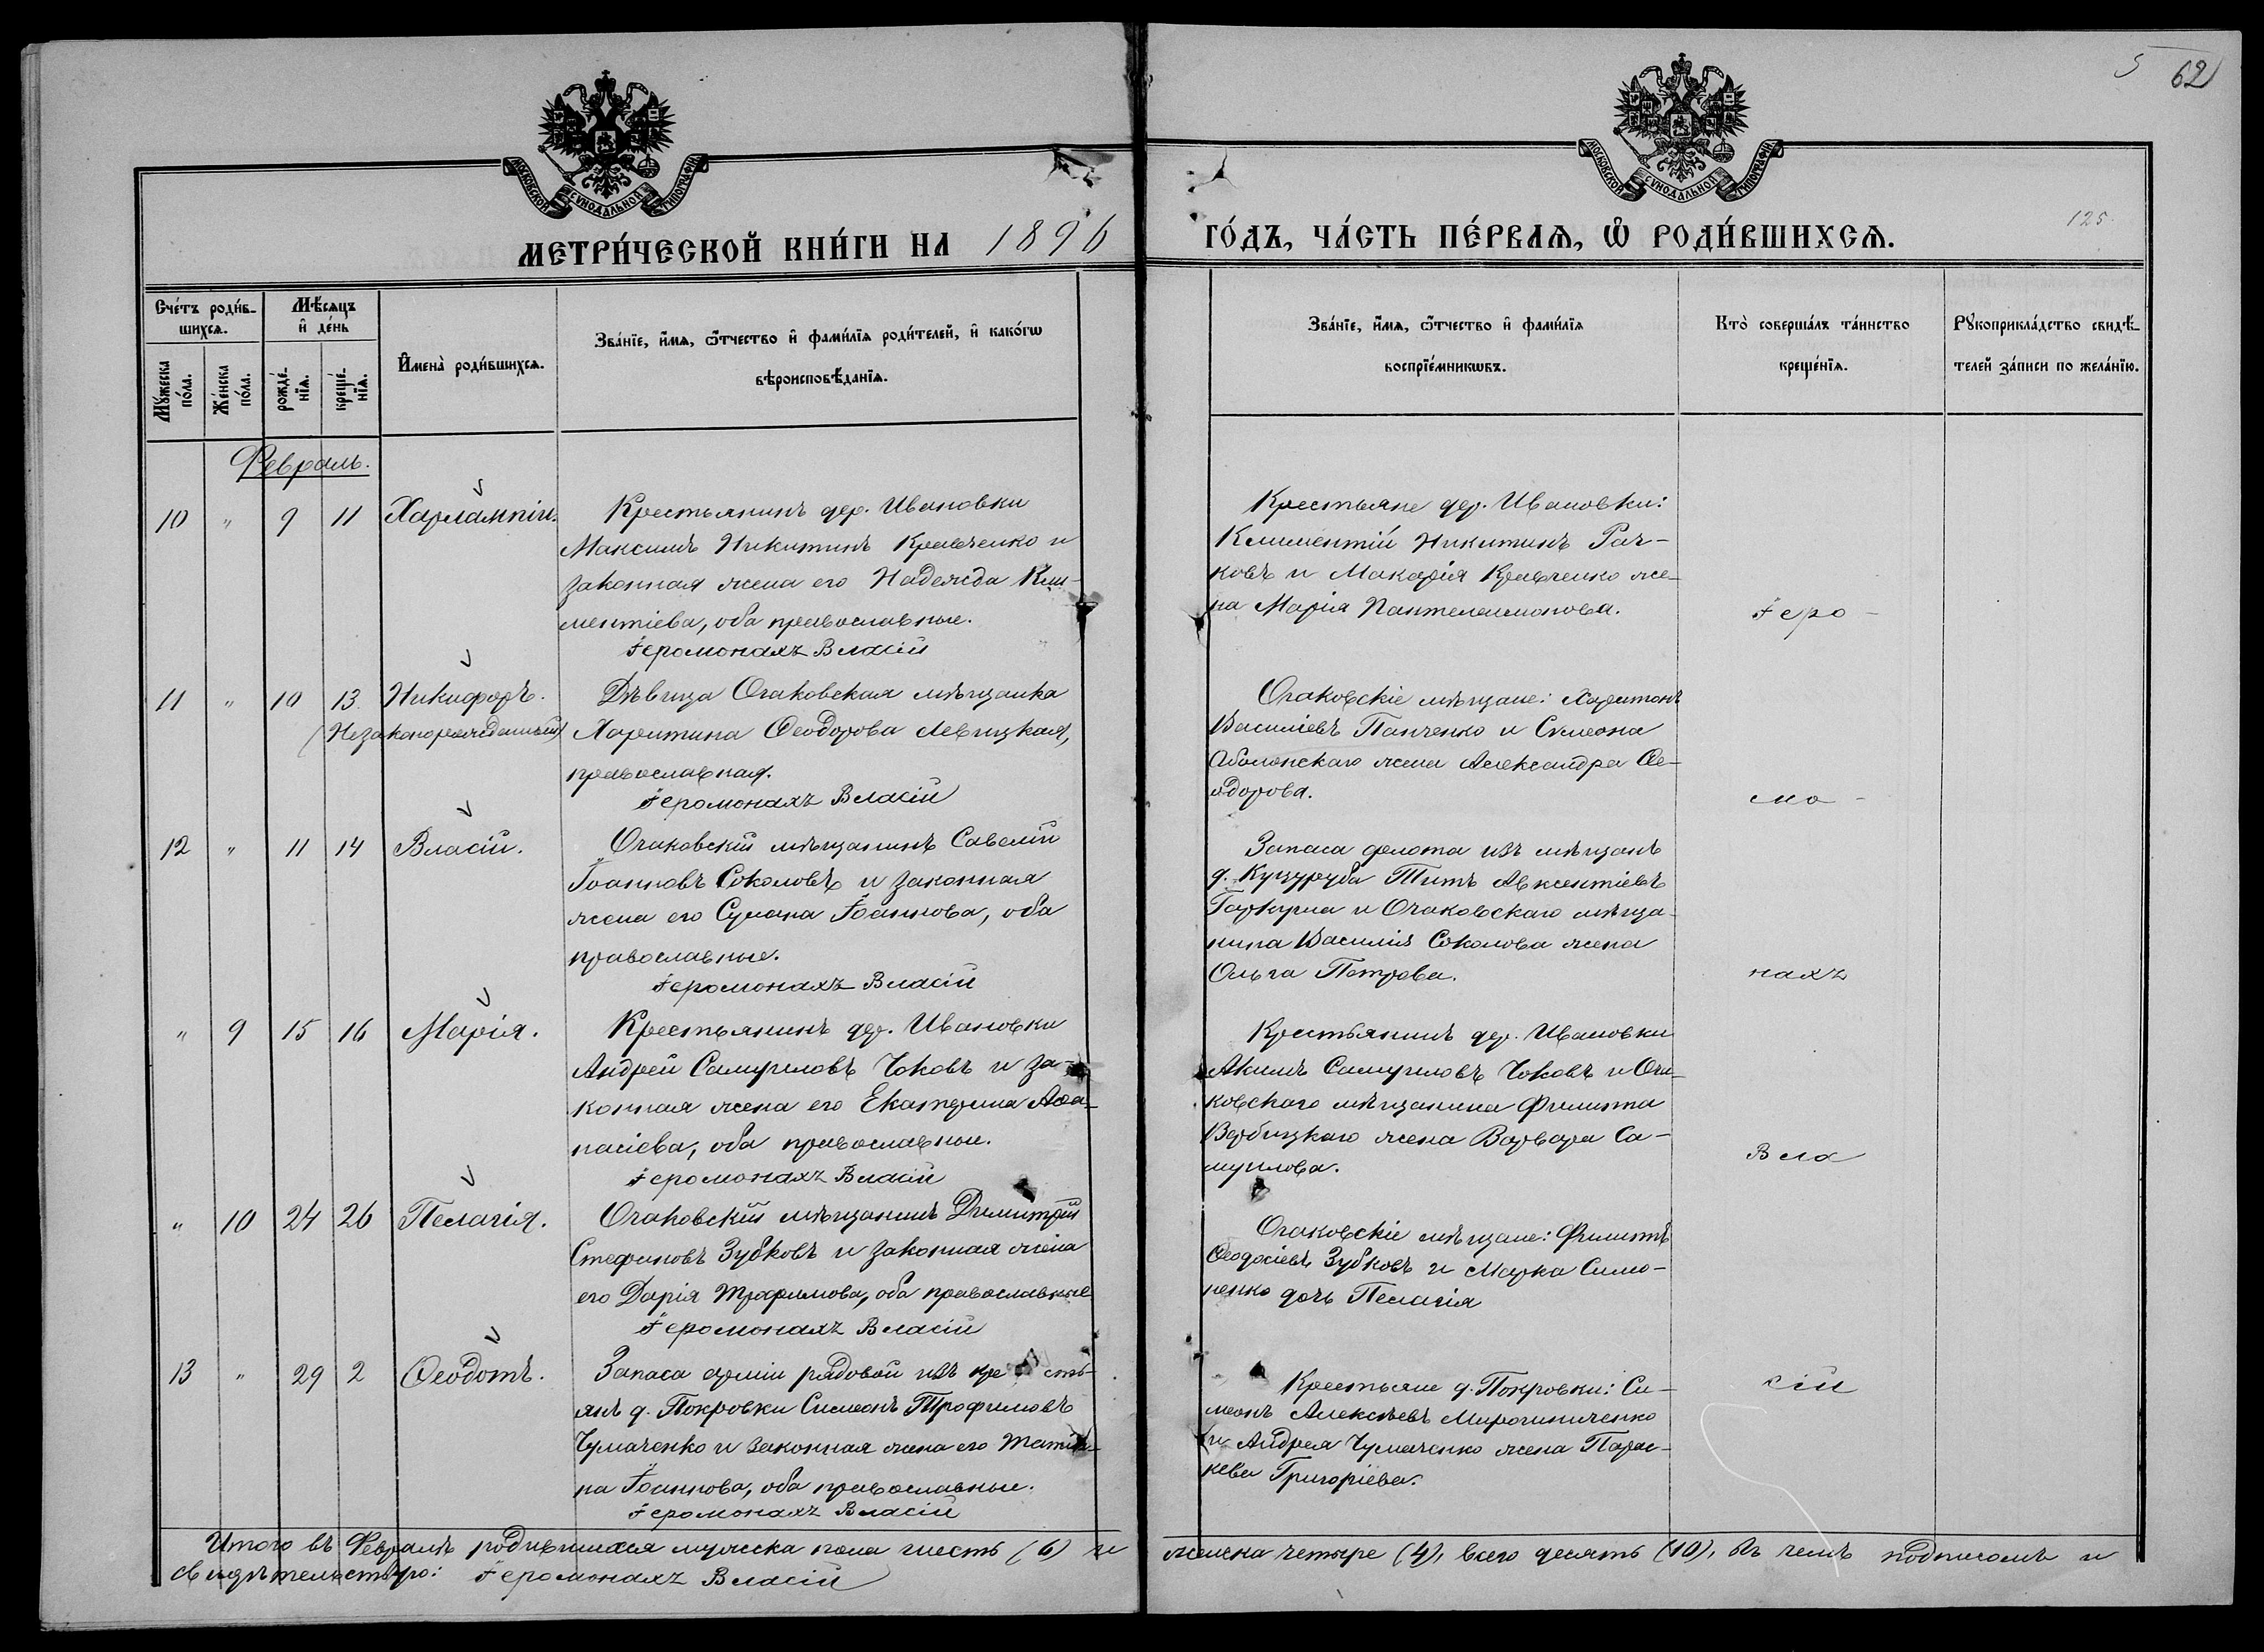 5 62
МОСКОВСКОЙ СѴНОДАЛЬНОЙ ТИПОГРАФІИ
МОСКОВСКОЙ СѴНОДАЛЬНОЙ ТИПОГРАФІИ
125
МЕТРИ́ЧЕСКОЙ КНИ́ГИ НА 1896
ГО́ДЪ, ЧА́СТЬ ПЕ́РВАѦ, Ѡ҆ РОДИ́ВШИХСѦ.
Сче́тъ роди́в-
шихсѧ.
Му́жеска по́ла.
Же́нска по́ла.
Мѣ́сѧцъ
и҆ де́нь
рожде́-
нїѧ.
креще́-
нїѧ.
И҆мена̀ роди́вшихсѧ.
Зва́нїе, и҆́мѧ, ѻ҆́тчество и҆ фами́лїѧ роди́телей, и҆ како́гѡ
вѣроисповѣ́данїѧ.
Зва́нїе, и҆́мѧ, ѻ҆́тчество и҆ фами́лїѧ
воспрїе́мникѡвъ.
Кто̀ соверша́лъ та́инство
креще́нїѧ.
Рꙋкоприкла́дство свидѣ́-
телей за́писи по жела́нїю.
Февраль.
10 " 9 11 Харлампій.
Крестьянинъ дер. Ивановки
Максимъ Никитинъ Кравченко и
законная жена его Надежда Кли-
ментіева, оба православные.
Іеромонахъ Власій
Крестьяне дер. Ивановки:
Климентій Никитинъ Рач-
ковъ и Макарія Кравченко же-
на Марія Пантелеимонова.
Іеро-
11 " 10 13 Никифоръ.
(Незаконорожденный)
Дѣвица Очаковская мѣщанка
Харитина Ѳеодорова Левицкая,
православная.
Іеромонахъ Власій
Очаковскіе мѣщане: Харитонъ
Василіевъ Панченко и Симеона
Оболонскаго жена Александра Ѳе-
одорова.
мо-
12 " 11 14 Власій.
Очаковскій мѣщанинъ Савелій
Іоанновъ Соколовъ и законная
жена его Сусана Іоаннова, оба
православные.
Іеромонахъ Власій
Запаса флота изъ мѣщанъ
д. Куцуруба Титъ Авксентіевъ
и Очаковскаго мѣща-
нина Василія Соколова жена
Ольга Петрова.
нахъ
" 9 15 16 Марія.
Крестьянинъ дер. Ивановки
Андрей Самуиловъ Чоковъ и за-
конная жена его Екатерина Аѳа-
насіева, оба православные.
Іеромонахъ Власій
Крестьянинъ дер. Ивановки
Акимъ Самуиловъ Чоковъ и Оча-
ковскаго мѣщанина Филиппа
Вербицкаго жена Варвара Са-
муилова.
Вла
" 10 24 26 Пелагія.
Очаковскій мѣщанинъ Димитрій
Стефановъ Зубковъ и законная жена
его Дарія Трофимова, оба православные
Іеромонахъ Власій
Очаковскіе мѣщане: Филиппъ
Ѳеодосіевъ Зубковъ и Марка Симо-
ненко дочь Пелагія
13 " 29 2 Ѳеодотъ.
Запаса арміи рядовой изъ кресть-
янъ д. Покровки Симеонъ Трофимовъ
Чумаченко и законная жена его Татія-
на Іоаннова, оба православные.
Іеромонахъ Власій
Крестьяне д. Покровки: Си-
меонъ Алексѣевъ Мирогиниченко
и Андрея Чумаченко жена Парас-
кева Григоріева.
сій
Итого въ Февралѣ родившихся мужеска пола шесть (6) и женска четыре (4), всего десять (10), въ чемъ подписомъ и
свидѣтельствую: Іеромонахъ Власій